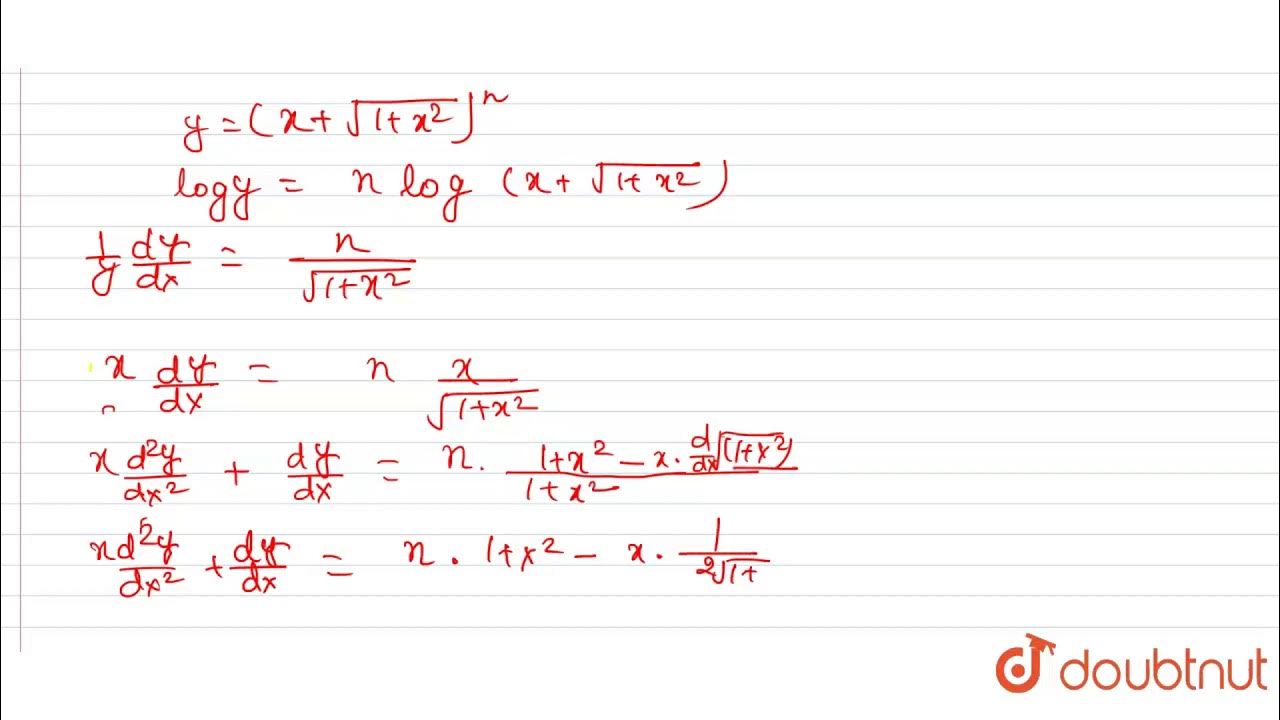 y = (x + √(1+x²))ⁿ
log y = n log (x + √(1+x²))
1/y dy/dx = n/√(1+x²)
x dy/dx = n x/√(1+x²)
x d²y/dx² + dy/dx = n. (1+x² – x. d/dx √(1+x²))/(1+x²)
x d²y/dx² + dy/dx = n . 1+x² – x . 1/2√1+
doubtnut